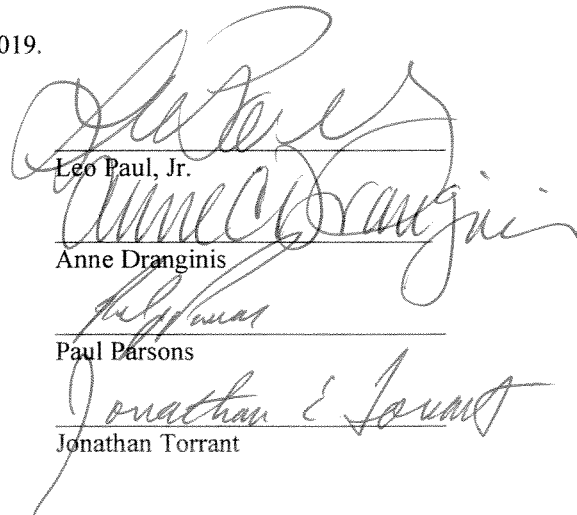 019.
Leo Paul, Jr.
Anne C Dranginis
Anne Dranginis
Paul Parsons
Jonathan E Torrant
Jonathan Torrant